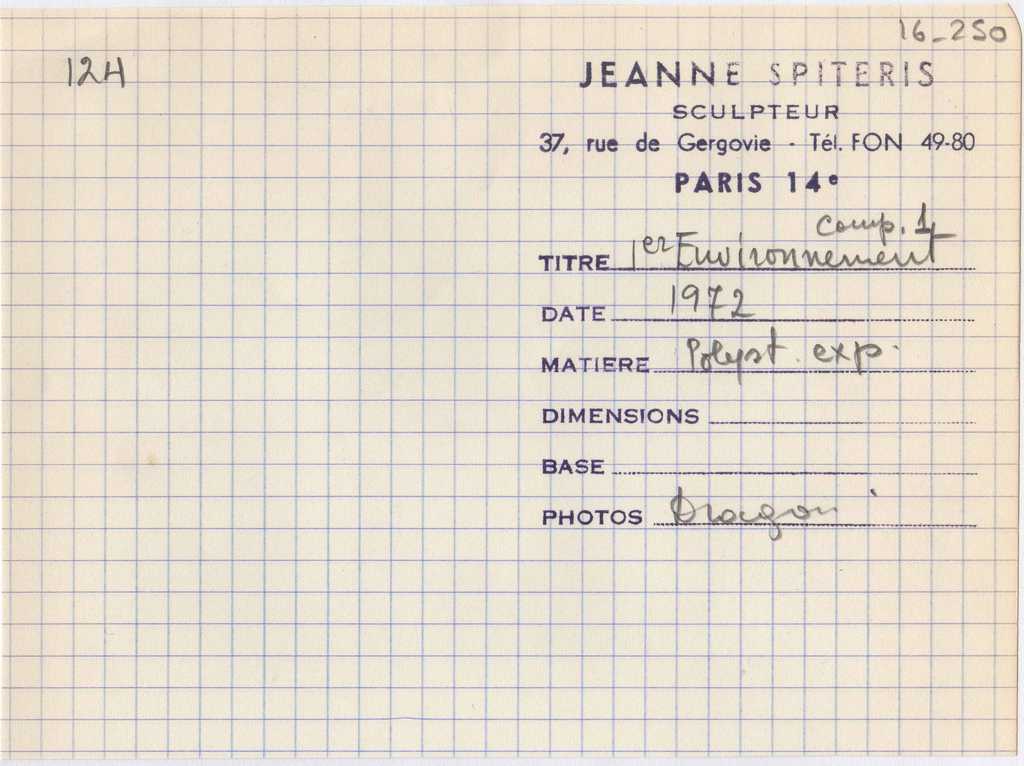 16-250
124
JEANNE SPITERIS
SCULPTEUR
37, rue de Gergovie - Tél. FON 49-80
PARIS 14e
Comp. 1
TITRE 1er Environnement
DATE 1972
MATIERE Polyst. exp.
DIMENSIONS
BASE
PHOTOS